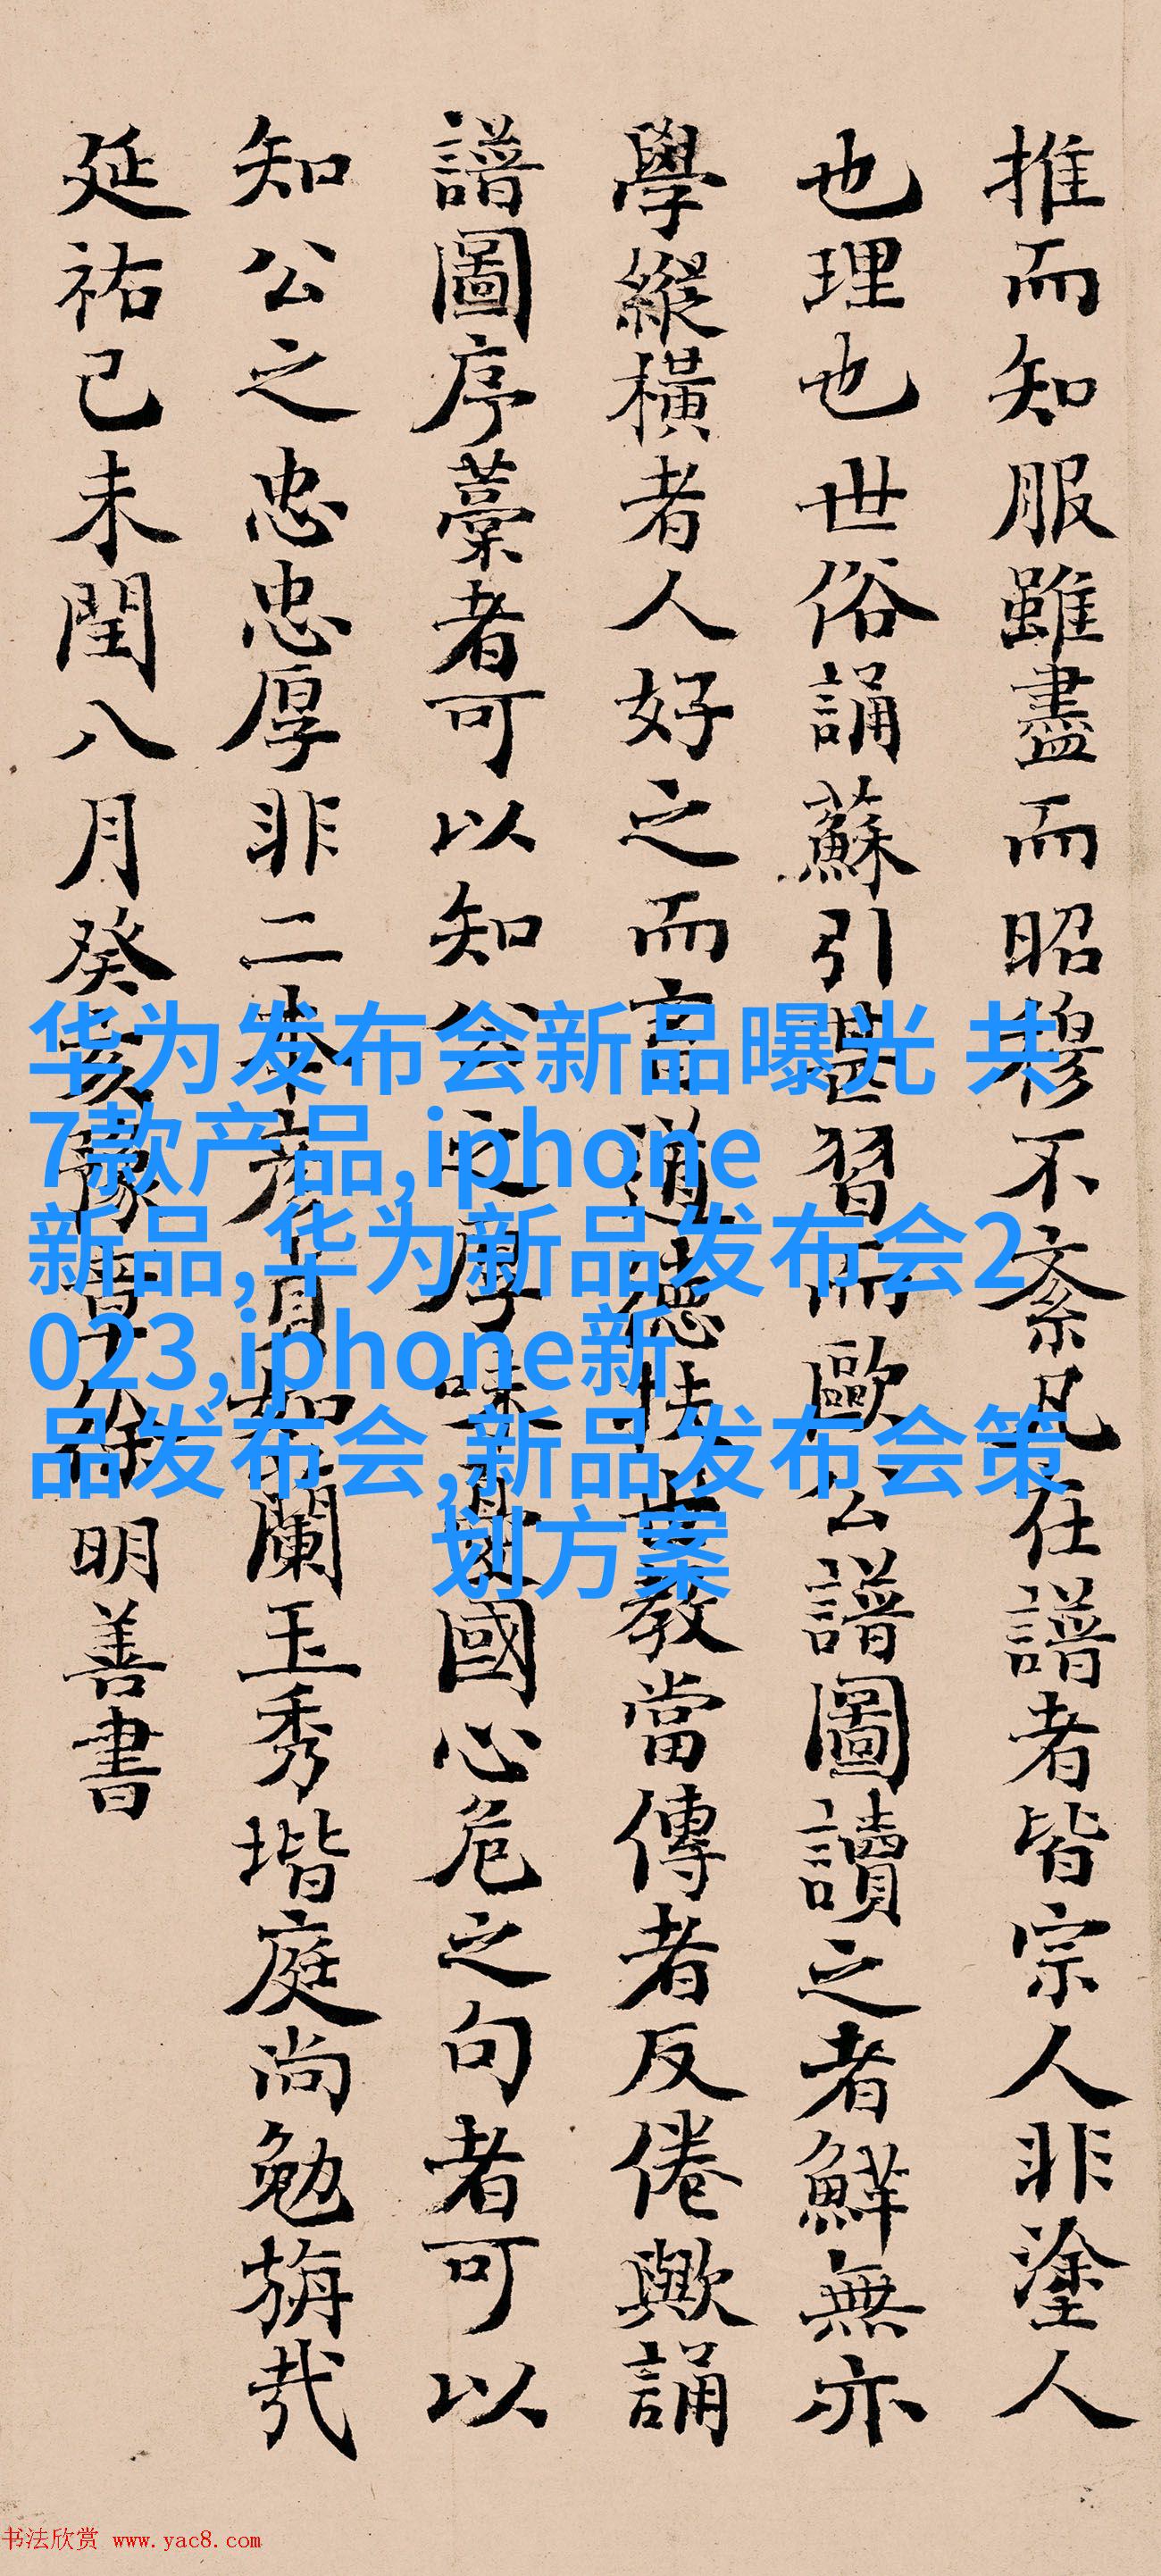 推而知服雖盡而昭穆不紊凡在譜者皆宗人非塗人
也理也世俗誦蘇引甚習而歐公譜圖讀之者鮮無亦
學縱橫者人好之而言道德扶世教當傳者反倦歟誦
譜圖序藁者可以知公之厚味憂國心危之句者可以
知公之忠忠厚非二本如闌玉秀堦庭尚勉旃哉
延祐己未閏八月癸亥豫章徐明善書
华为发布会新品曝光 共
7款产品,iphone
新品,华为新品发布会2
023,iphone新
品发布会,新品发布会策
划方案
书法欣赏 www.yac8.com